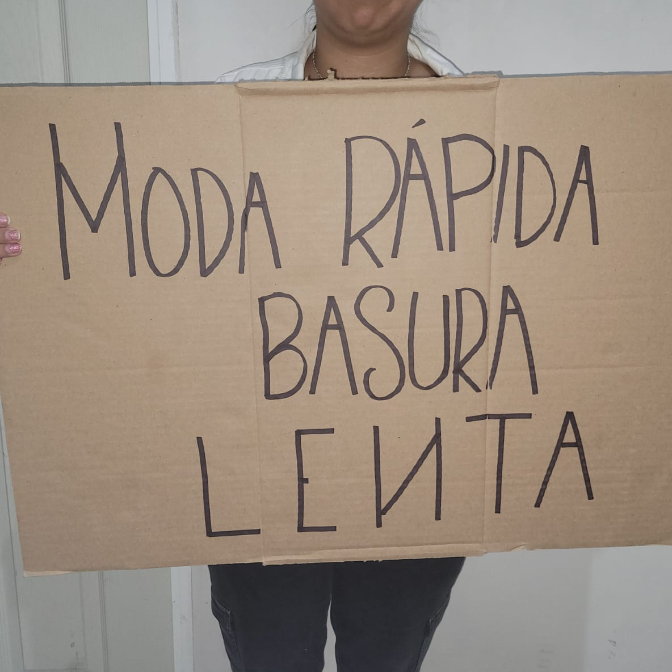 MODA RÁPIDA
BASURA
LENTA